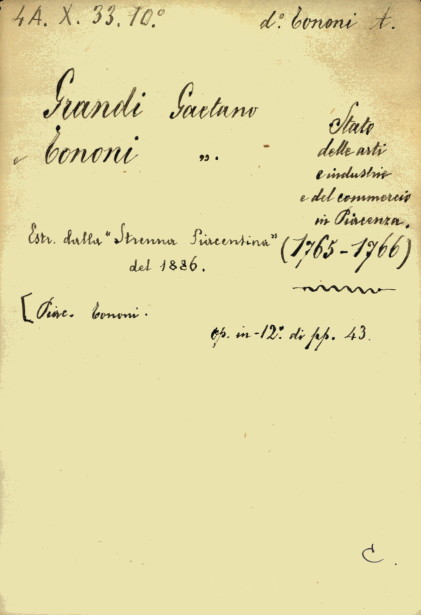 4A. X. 33. 10.°
d.° Tononi A.
Grandi Gaetano
e Tononi „.
Stato
delle arti
e industrie
e del commercio
in Piacenza.
(1765-1766)
Estr. dalla "Strenna Piacentina"
del 1886.
[Piac. Tononi.
op. in-12.° di pp. 43.
C.